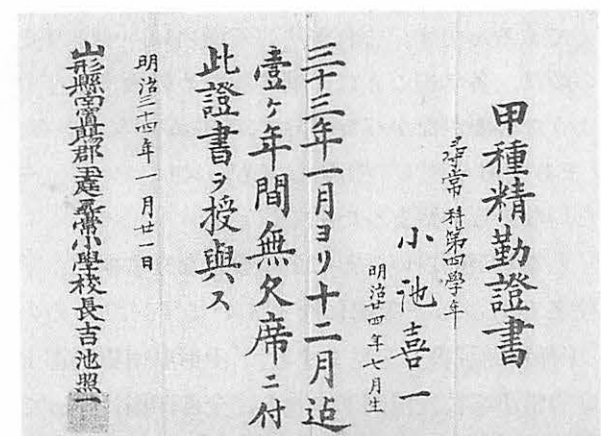 甲種精勤證書
尋常科第四學年
小池喜一
明治廿四年七月生
三十三年一月ヨリ十二月迠
壹ヶ年間無欠席ニ付
此證書ヲ授與ス
明治三十四年 月廿一日
山形縣南置賜郡 尋常小學校長吉池照一